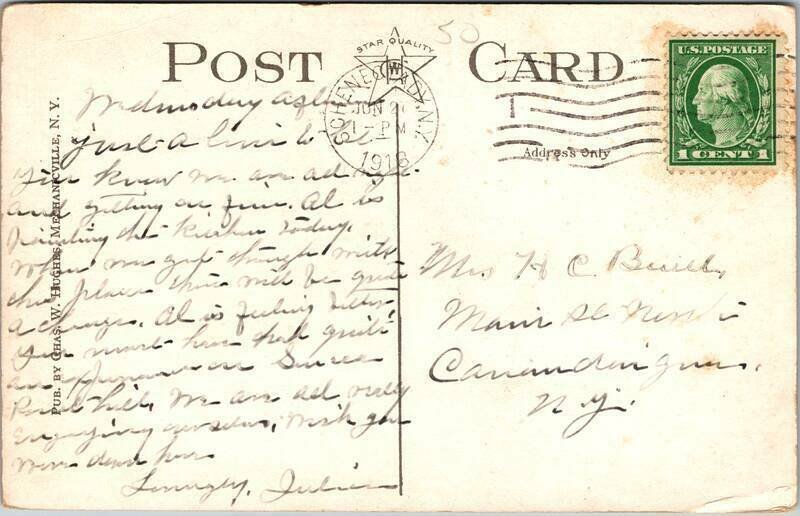 POST CARD
STAR QUALITY
W
50
SCHENECTADY, N.Y.
JUN 21
1-PM
1916
U.S. POSTAGE
1 CENT 1
Address Only
PUB. BY CHAS. W. HUGHES, MECHANICVILLE, N. Y.
Wednesday
Just a line to let
you know we are all
and getting on fine. Al is
painting the kitchen today.
When we get through with
this place there will be quite
a change. Al is feeling better
You must have had quite
an
hill, We are all really
enjoying ourselves, Wish you
were down here
Lovingly, Julia
Mrs H C Buell,
Main St North
Canandaigua,
N.Y.